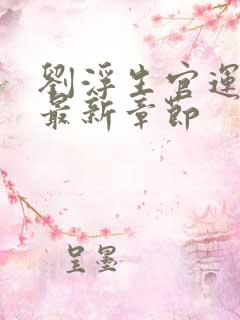 劉浮生官運
最新章節
呈墨